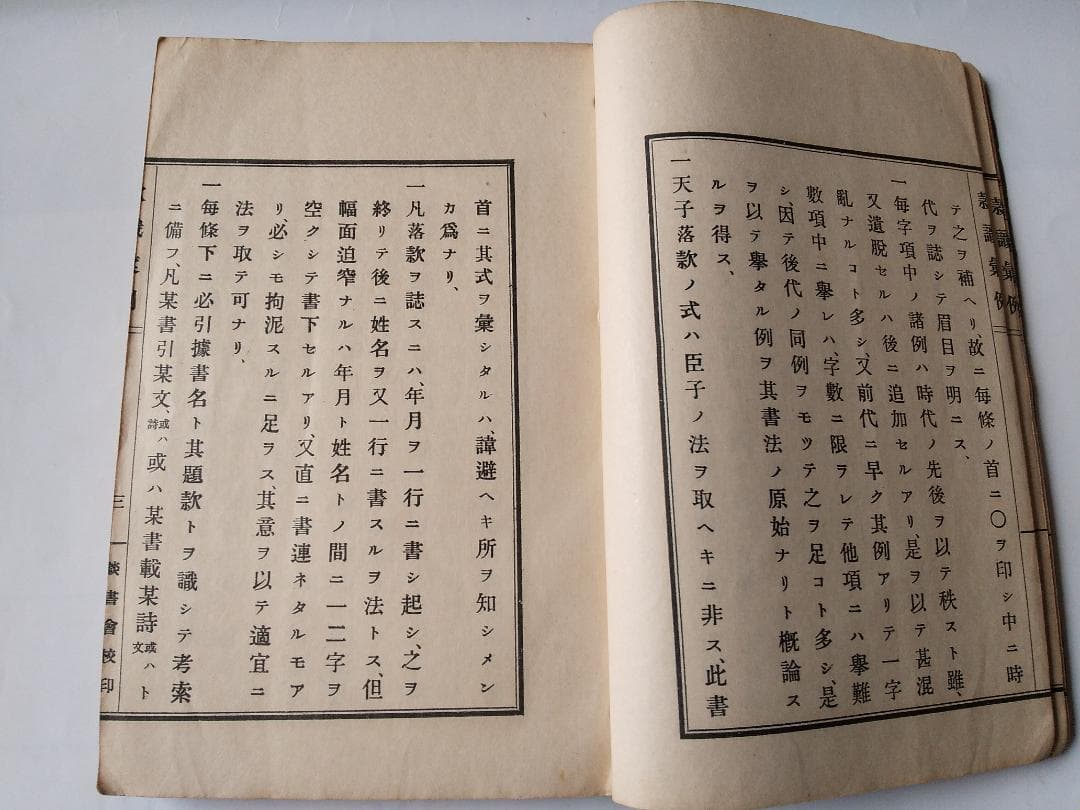 テ之ヲ補ヘリ、故ニ每條ノ首ニ〇ヲ印シ中ニ時
代ヲ誌シテ眉目ヲ明ニス、
一每字項中ノ諸例ハ時代ノ先後ヲ以テ秩スト雖、
又遺脱セルハ後ニ追加セルアリ、是ヲ以テ甚混
亂ナルコト多シ、又前代ニ早ク其例アリテ一字
數項中ニ擧レハ、字數ニ限ラレテ他項ニハ擧難
シ、因テ後代ノ同例ヲモツテ之ヲ足コト多シ、是
ヲ以テ擧タル例ヲ其書法ノ原始ナリト概論ス
ルヲ得ス、
一天子落款ノ式ハ臣子ノ法ヲ取ヘキニ非ス、此書
首ニ其式ヲ彙シタルハ、諱避ヘキ所ヲ知シメン
カ爲ナリ、
一凡落款ヲ誌スニハ、年月ヲ一行ニ書シ起シ、之ヲ
終リテ後ニ姓名ヲ又一行ニ書スルヲ法トス、但
幅面迫窄ナルハ年月ト姓名トノ間ニ一二字ヲ
空クシテ書下セルアリ、又直ニ書連ネタルモア
リ、必シモ拘泥スルニ足ラス、其意ヲ以テ適宜ニ
法ヲ取テ可ナリ、
一每條下ニ必引據書名ト其題款トヲ識シテ考索
ニ備フ、凡某書引某文、或ハ詩或ハ某書載某詩或ハ文ト
三
談書會校印